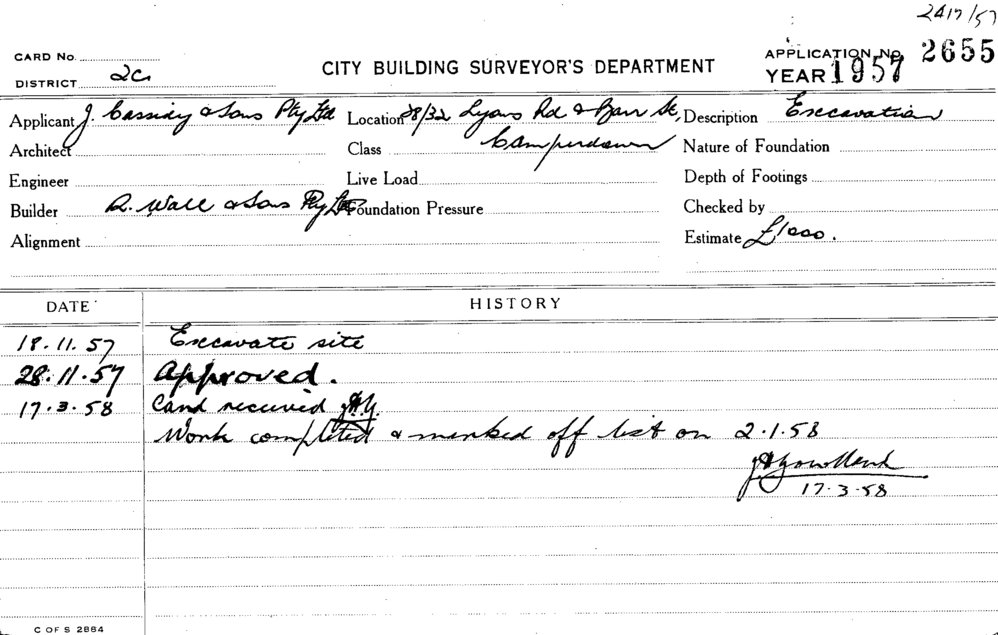 2417/57
CARD No.
DISTRICT 2C.
CITY BUILDING SURVEYOR'S DEPARTMENT
APPLICATION No. 2655
YEAR 1957
Applicant J. Cassidy & Sons Pty Ltd
Location 28/32 Lyons Rd & Barr St,
Description Excavation
Architect
Class Camperdown
Nature of Foundation
Engineer
Live Load
Depth of Footings
Builder R. Wall & Sons Pty Ltd
Foundation Pressure
Checked by
Alignment
Estimate £1000.
DATE
HISTORY
18.11.57 Excavate site
28.11.57 Approved.
17.3.58 Card received
Work completed & marked off list on 2.1.58
17.3.58
C OF S 2884